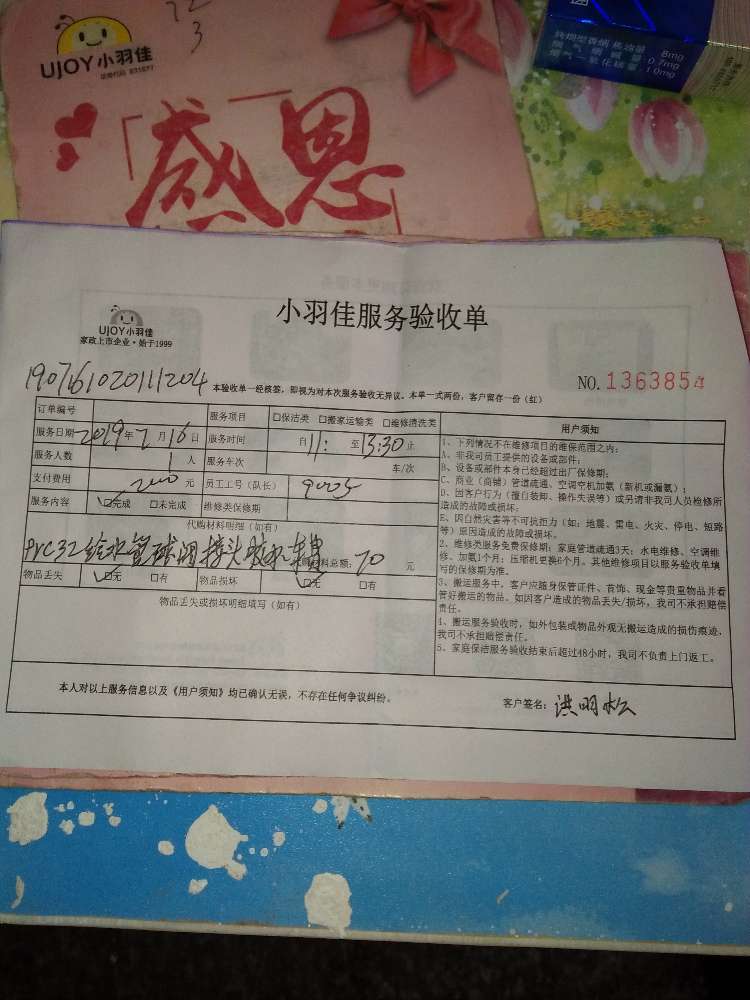 12
3
UJOY小羽佳
「感恩
焦油量 8mg
烟气烟碱量 0.7mg
烟气一氧化碳量 10mg
小羽佳服务验收单
UJOY小羽佳
家政上市企业·始于1999
1907161020111204
本验收单一经核签，即视为对本次服务验收无异议。本单一式两份，客户留存一份（红）
NO. 1363854
订单编号 服务项目 □保洁类 □搬家运输类 □维修清洗类
服务日期 2019年7月16日 服务时间 自11: 至13:30止
服务人数 1人 服务车次 车/次
支付费用 200元 员工工号（队长） 9005
服务内容 ☑完成 □未完成 维修类保修期
代购材料明细（如有）
PVC32给水管球阀接头胶水 材料总额：70元
物品丢失 ☑无 □有 物品损坏 ☑无 □有
物品丢失或损坏明细填写（如有）
用户须知
1、下列情况不在维修项目的维保范围之内：
A、非我司员工提供的设备或部件；
B、设备或部件本身已经超过出厂保修期；
C、商业（商铺）管道疏通、空调空机加氨（新机或漏氨）；
D、因客户行为（擅自装卸、操作失误等）或另请非我司人员检修所
造成的故障或损坏；
E、因自然灾害等不可抗力（如：地震、雷电、火灾、停电、短路
等）原因造成的故障或损坏。
2、维修类服务免费保修期：家庭管道疏通3天；水电维修、空调维
修、加氨1个月；压缩机更换6个月。其他维修项目以服务验收单填
写的保修期为准。
3、搬运服务中，客户应随身保管证件、首饰、现金等贵重物品并看
管好搬运的物品。如因客户造成的物品丢失/损坏，我司不承担赔偿
责任。
4、搬运服务验收时，如外包装或物品外观无搬运造成的损伤痕迹，
我司不承担赔偿责任。
5、家庭保洁服务验收结束后超过48小时，我司不负责上门返工。
本人对以上服务信息以及《用户须知》均已确认无误，不存在任何争议纠纷。
客户签名：洪明松